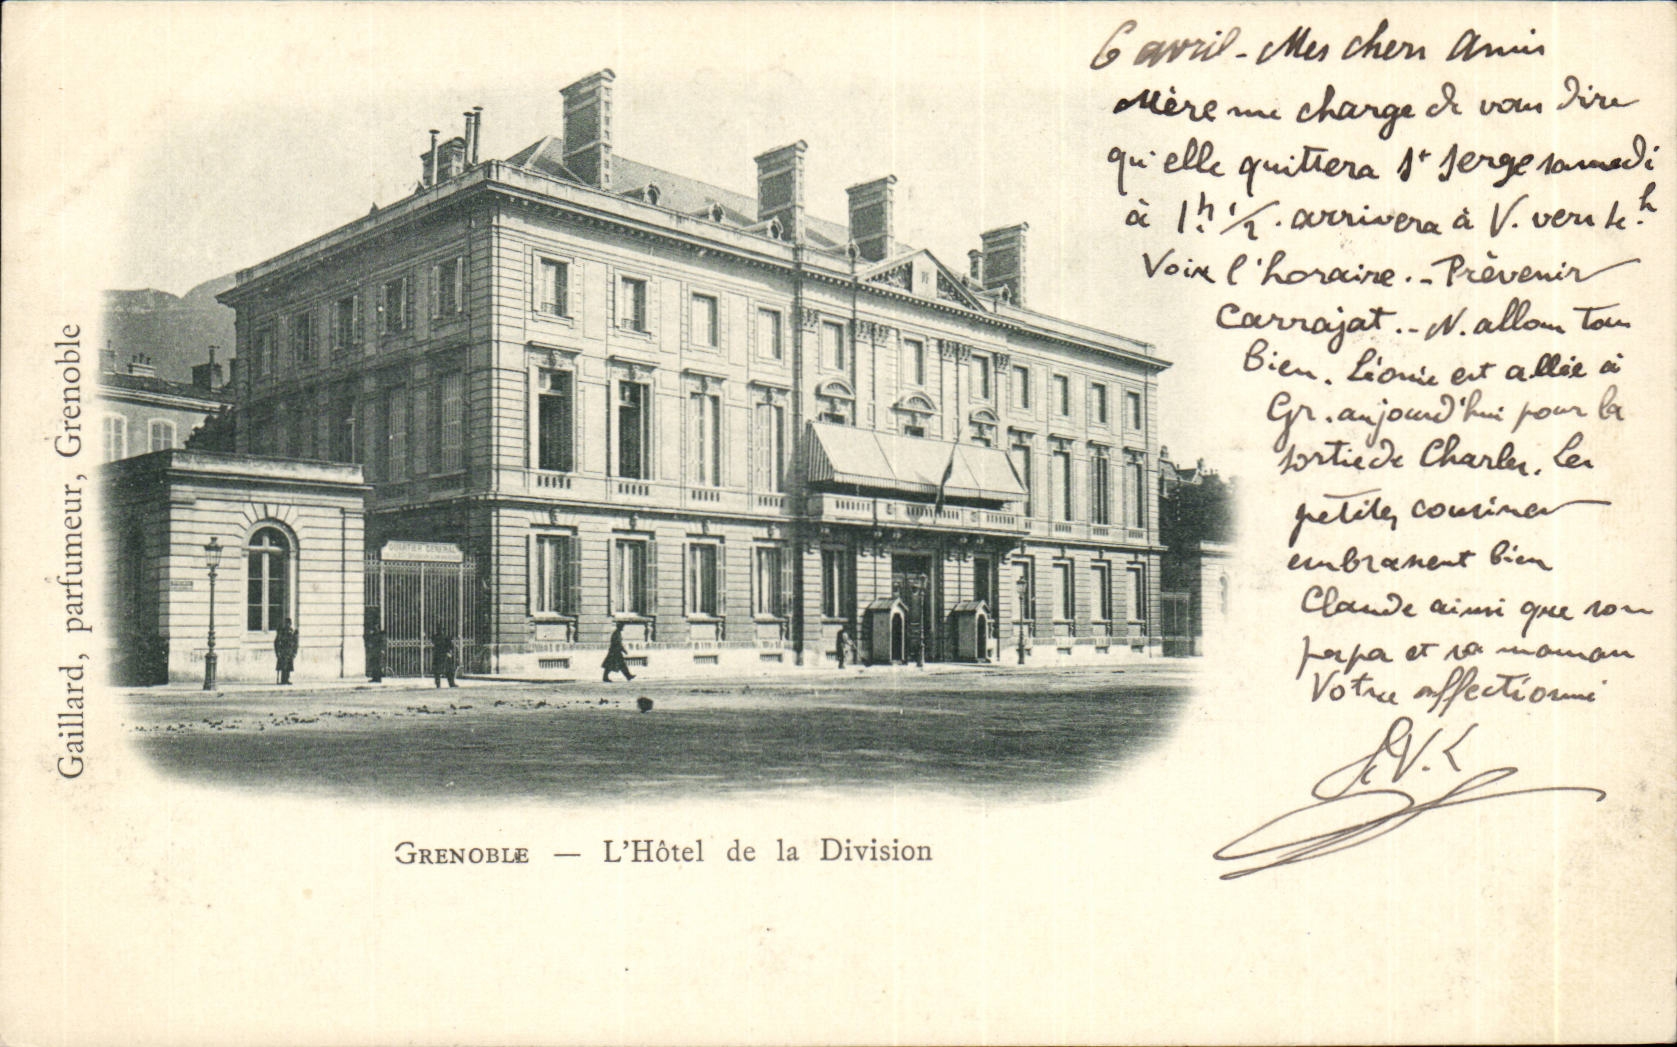 6 avril - Mes chers Amis
Mère me charge de vous dire
qu'elle quittera St Serge samedi
à 1h. 1/2. arrivera à V. vers 4h.
Voir l'horaire. - Prévenir
Carrajat. - N. allons tous
bien. Léonie est allée à
Gr. aujourd'hui pour la
sortie de Charles. Les
petites cousines
embrassent bien
Claude ainsi que son
papa et sa maman
Votre affectionné
QUARTIER GENERAL
Gaillard, parfumeur, Grenoble
GRENOBLE — L'Hôtel de la Division